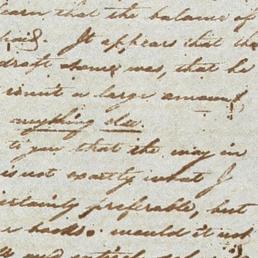 that the balance of
paid. It appears that the
draft was, that he
a large amount,
anything else.
to you that the way in
is not exactly what I
preferable, but
would it not